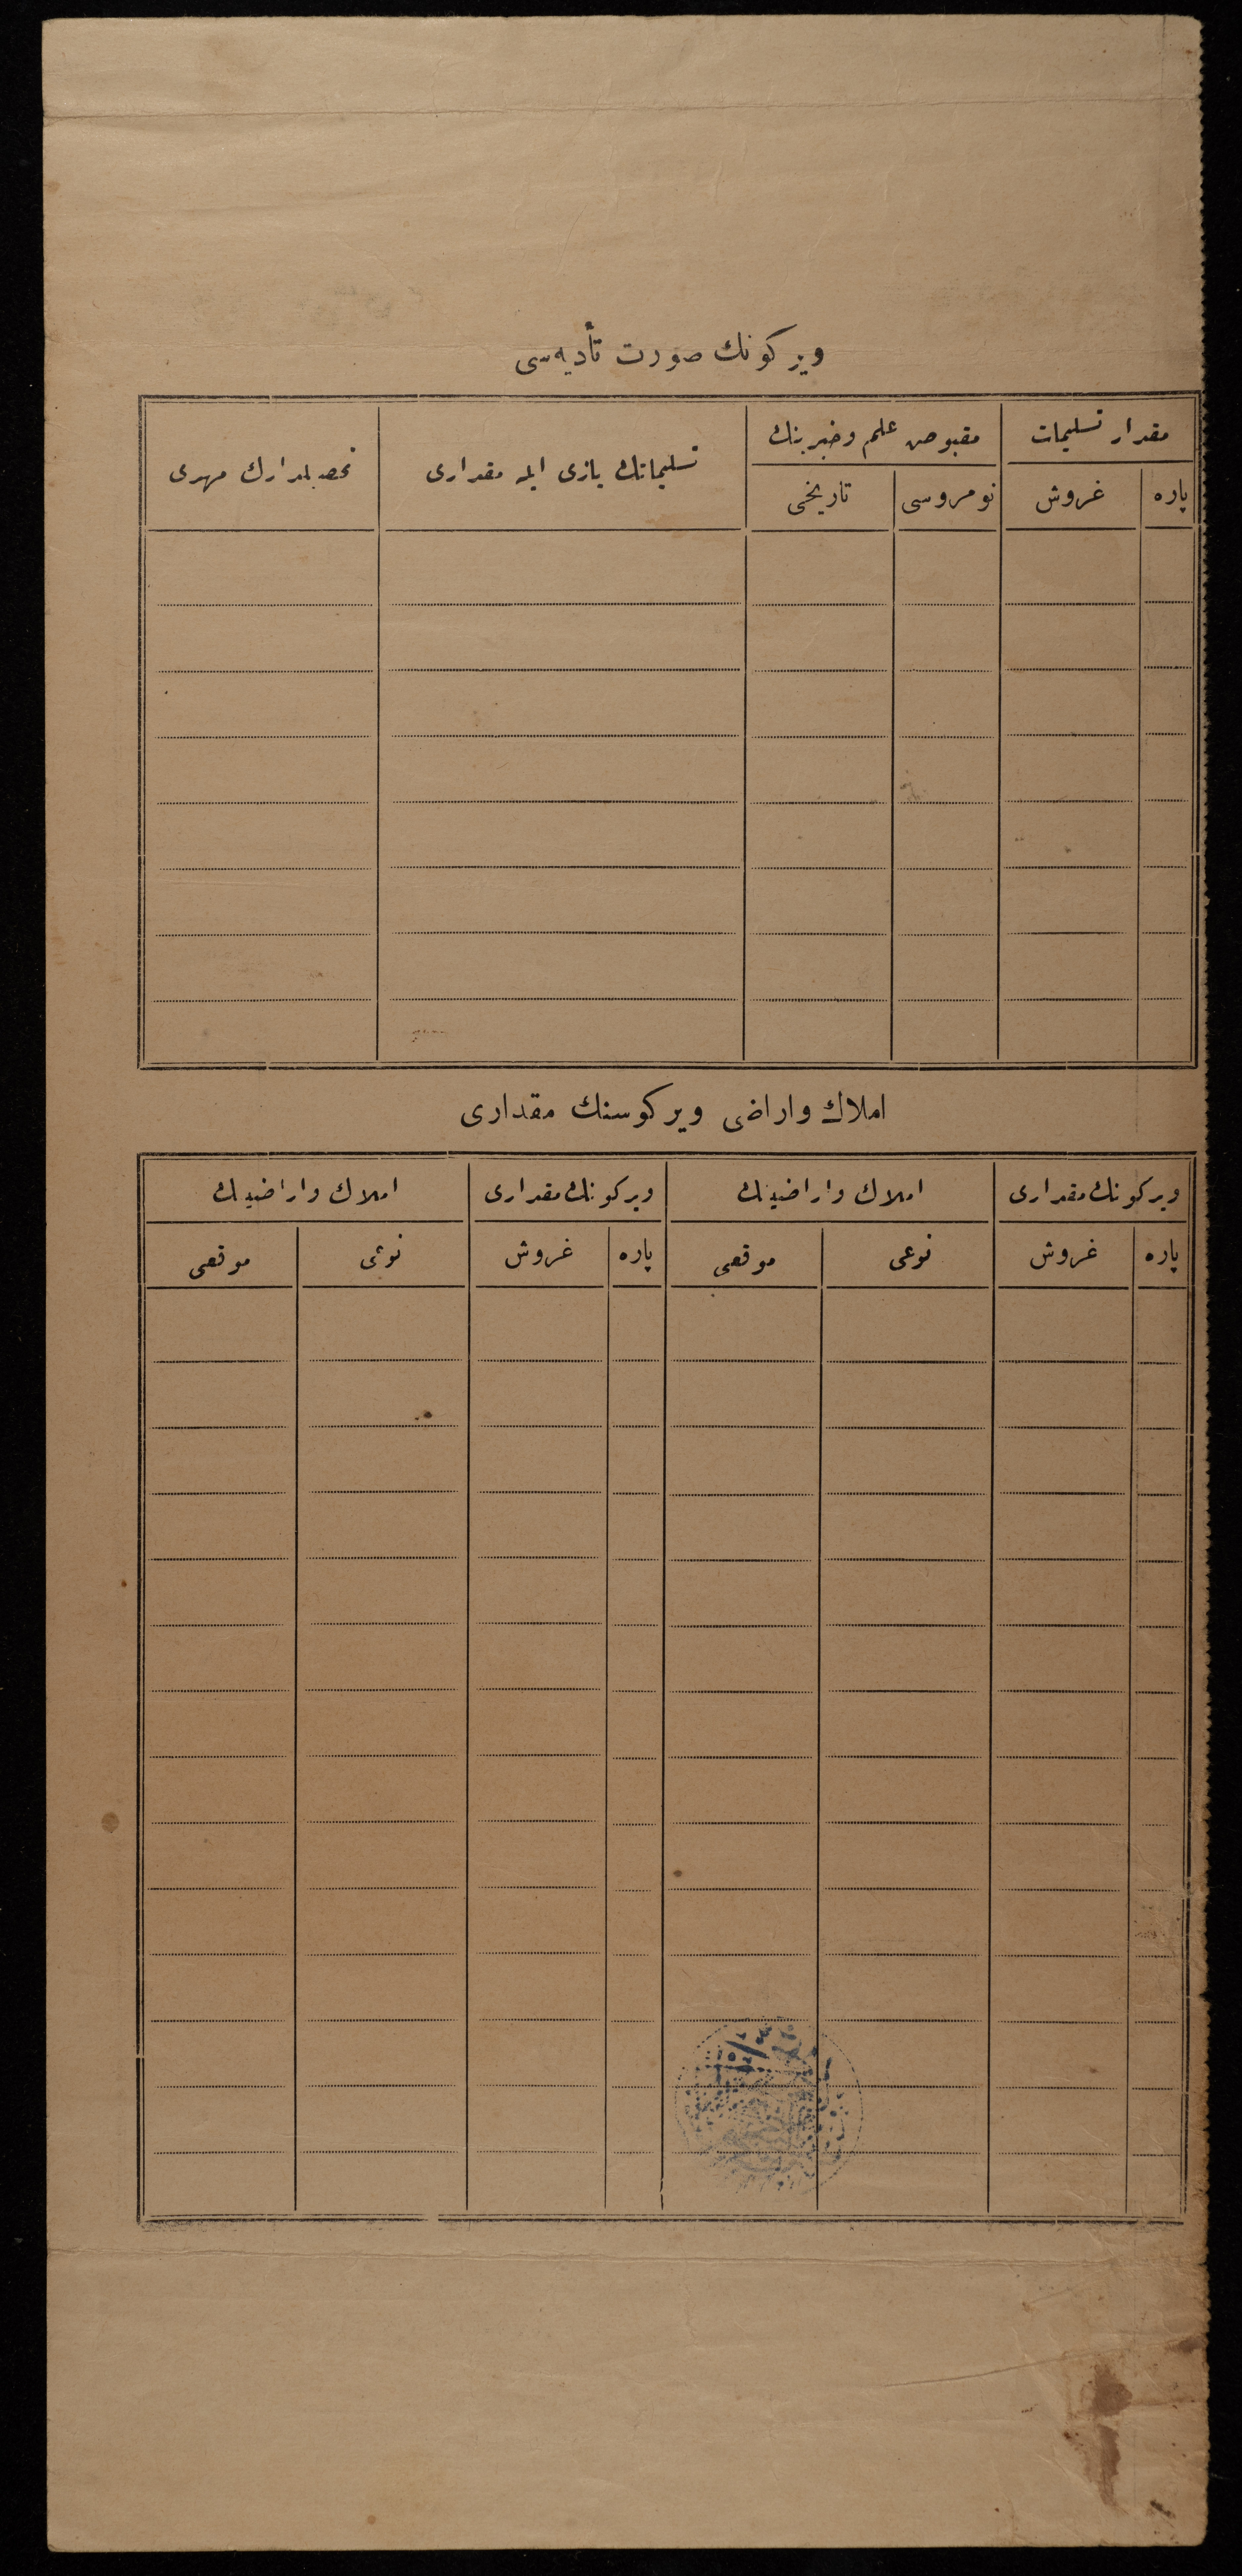 ویرکونك صورت تأدیه‌سی
مقدار تسلیمات
مقبوض علم وخبرینك
تسلیماتك یازی ایله مقداری
تحصیلدارك مهری
پاره
غروش
نومروسی
تاریخی
املاك واراضی ویرکوسنك مقداری
ویرکونك مقداری
املاك واراضینك
ویرکونك مقداری
املاك واراضینك
پاره
غروش
نوعی
موقعی
پاره
غروش
نوعی
موقعی